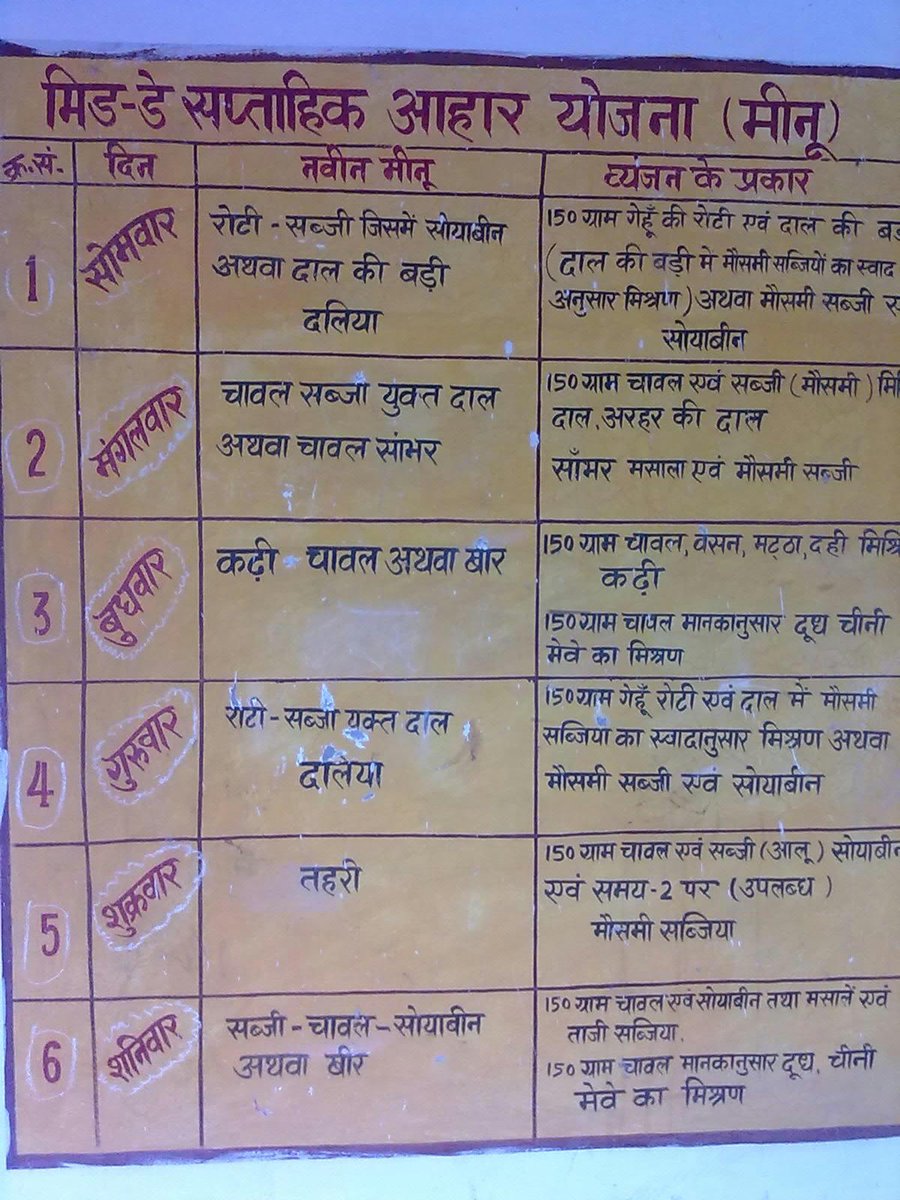 मिड-डे सप्ताहिक आहार योजना (मीनू)
क्र.सं. दिन नवीन मीनू व्यंजन के प्रकार
1 सोमवार
रोटी - सब्जी जिसमें सोयाबीन
अथवा दाल की बड़ी
दलिया
150 ग्राम गेहूँ की रोटी एवं दाल की
(दाल की बड़ी मे मौसमी सब्जियों का स्वाद
अनुसार मिश्रण) अथवा मौसमी सब्जी
सोयाबीन
2 मंगलवार
चावल सब्जी युक्त दाल
अथवा चावल सांभर
150 ग्राम चावल एवं सब्जी (मौसमी)
दाल, अरहर की दाल
साँभर मसाला एवं मौसमी सब्जी
3 बुधवार
कढ़ी - चावल अथवा बीर
150 ग्राम चावल, वेसन, मट्ठा, दही
कढ़ी
150 ग्राम चावल मानकानुसार दूध चीनी
मेवे का मिश्रण
4 गुरुवार
रोटी - सब्जी युक्त दाल
दालिया
150 ग्राम गेहूँ रोटी एवं दाल में मौसमी
सब्जिया का स्वादानुसार मिश्रण अथवा
मौसमी सब्जी एवं सोयाबीन
5 शुक्रवार
तहरी
150 ग्राम चावल एवं सब्जी (आलू) सोयाबीन
एवं समय-2 पर (उपलब्ध)
मौसमी सब्जिया
6 शनिवार
सब्जी - चावल - सोयाबीन
अथवा बीर
150 ग्राम चावल एवं सोयाबीन तथा मसालें एवं
ताजी सब्जिया.
150 ग्राम चावल मानकानुसार दूध, चीनी
मेवे का मिश्रण